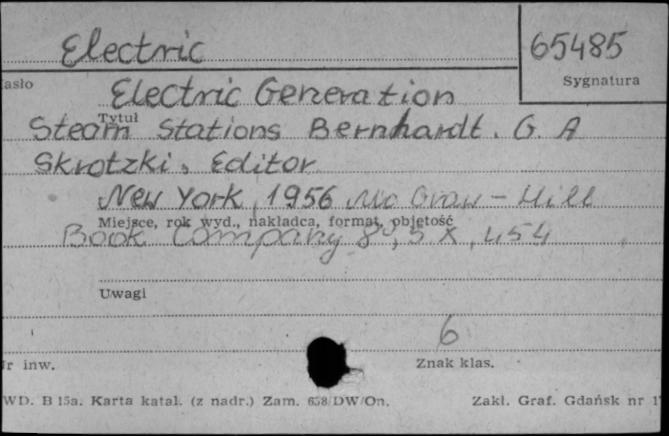 Electric 65485
asło Sygnatura
Electric Generation
Tytuł
Steam Stations Bernhardt. G. A
Skrotzki, Editor
New York, 1956 Mc Graw-Hill
Miejsce, rok wyd., nakładca, format, objętość
Book Company 8°, s X, 454
Uwagi
6
r inw. Znak klas.
WD. B 15a. Karta katal. (z nadr.) Zam. 658/DW/On. Zakł. Graf. Gdańsk nr 1